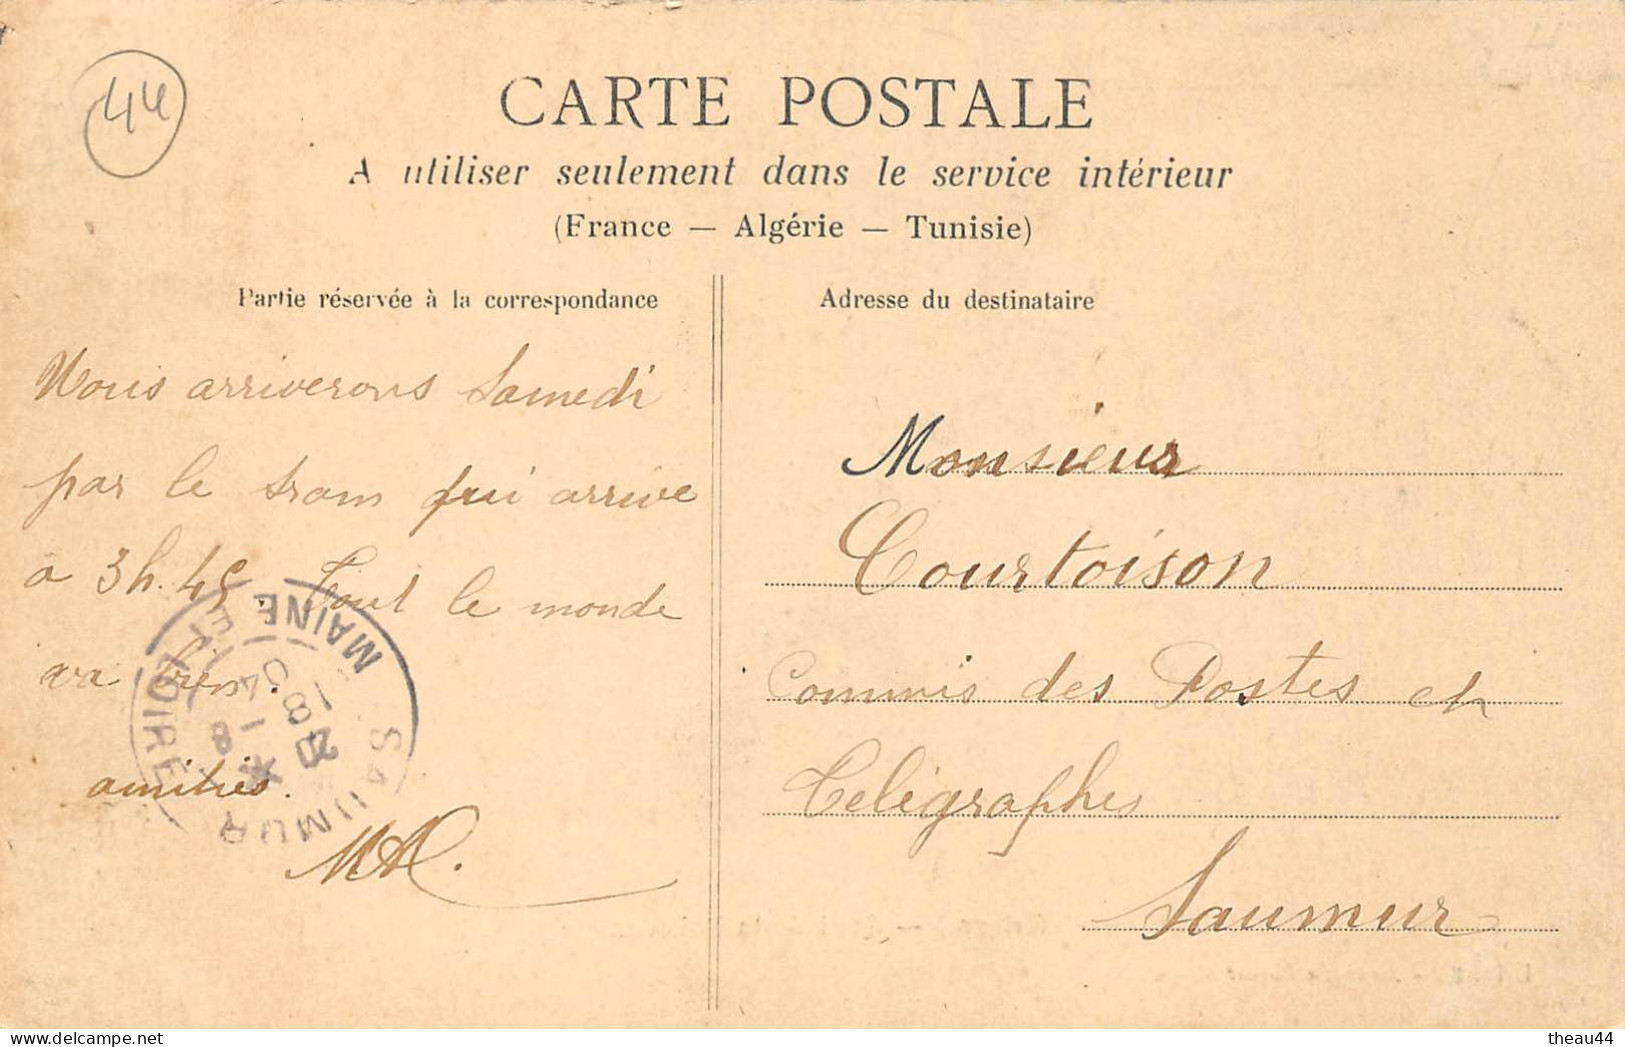 44
CARTE POSTALE
A utiliser seulement dans le service intérieur
(France — Algérie — Tunisie)
Partie réservée à la correspondance
Adresse du destinataire
Nous arriverons Samedi
par le tram qui arrive
à 3h.45. Tout le monde
va bien.
amitiés.
Monsieur
Courtoison
Commis des Postes et
Télégraphes
Saumur
SAUMUR
MAINE ET LOIRE
theau44